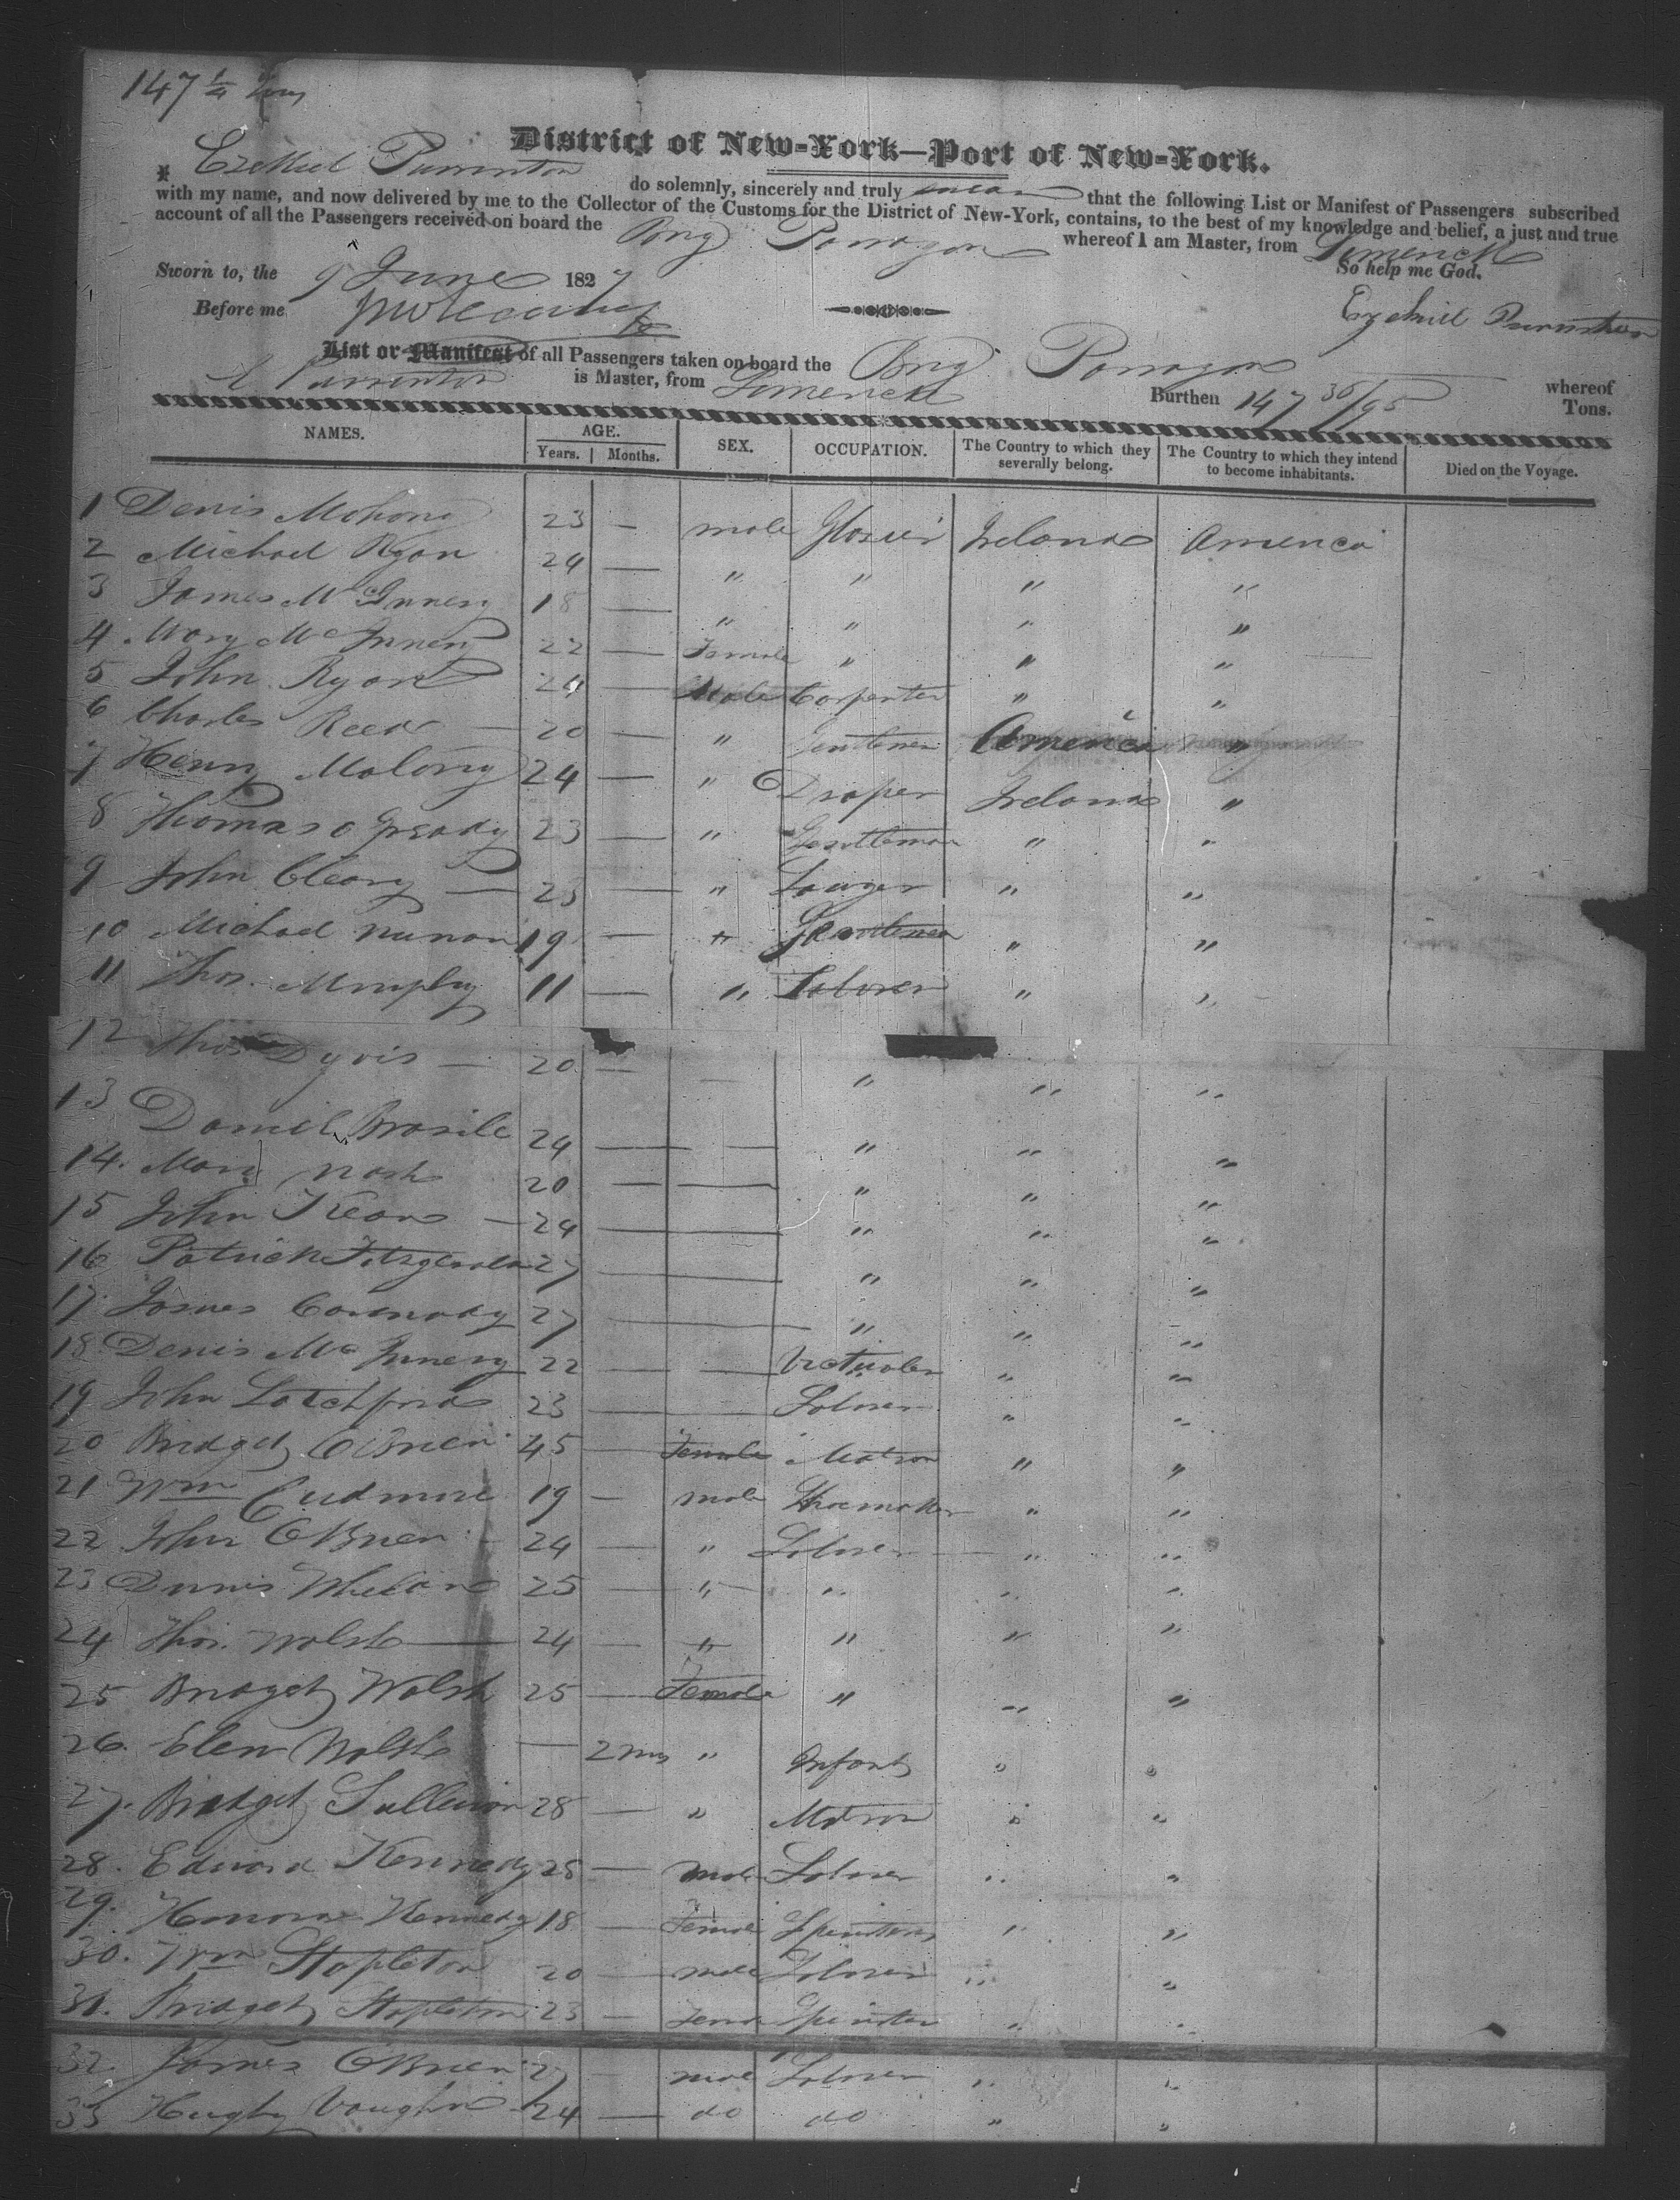 147 1/4 Tons
District of New-York—Port of New-York.
I, Ezekiel Purrinton do solemnly, sincerely and truly swear that the following List or Manifest of Passengers subscribed
with my name, and now delivered by me to the Collector of the Customs for the District of New-York, contains, to the best of my knowledge and belief, a just and true
account of all the Passengers received on board the Brig Paragon whereof I am Master, from Limerick
So help me God.
Sworn to, the 9 June 1827
Before me
Ezekiel Purrinton
List or Manifest of all Passengers taken on board the Brig Paragon whereof
E Purrinton is Master, from Limerick Burthen 147 36/95 Tons.
NAMES. AGE. Years. Months. SEX. OCCUPATION. The Country to which they severally belong. The Country to which they intend to become inhabitants. Died on the Voyage.
1 Denis Mahony 23 — male Ireland America
2 Michael Ryan 24 — " " " "
3 James McInnery 18 — " " " "
4 Mary McInnery 22 — Female " " "
5 John Ryan 24 — Male Carpenter " "
6 Charles Reed — 20 — " Gentleman America "
7 Henry Malony 24 — " Draper Ireland "
8 Thomas O Grady 23 — " Gentleman " "
9 John Cleary — 23 — " Lawyer " "
10 Michael Nunan 19 — " Gentleman " "
11 Thos. Murphy 11 — " Laborer " "
12 Thos — 20 — — " " "
13 Daniel Brasile 24 — — " " "
14. Mary Nash 20 — — " " "
15 John Keane — 24 — " " "
16 Patrick Fitzgerald 27 — " " "
17 James Carmody 27 — " " "
18 Denis McInnery 22 — — Victualer " "
19 John Latchford 23 — — Laborer " "
20 Bridget OBrien 45 — Female Matron " "
21 Wm Cudmore 19 — male Shoemaker " "
22 John OBrien 24 — " Laborer " "
23 Dennis Whelan 25 — " " " "
24 Thos. Walsh — 24 — " " " "
25 Bridget Walsh 25 — Female " " "
26. Elen Walsh — 2 ms " Infant " "
27. Bridget Sullivan 28 — " Matron " "
28. Edward Kennedy 25 — male Laborer " "
29. Honora Kennedy 18 — Female Spinster " "
30. Wm Stapleton 20 — male Laborer " "
31. Bridget Stapleton 23 — Fema Spinster " "
32. James OBrien 27 — male Laborer " "
33 Hughy Vaughn 24 — do do " "